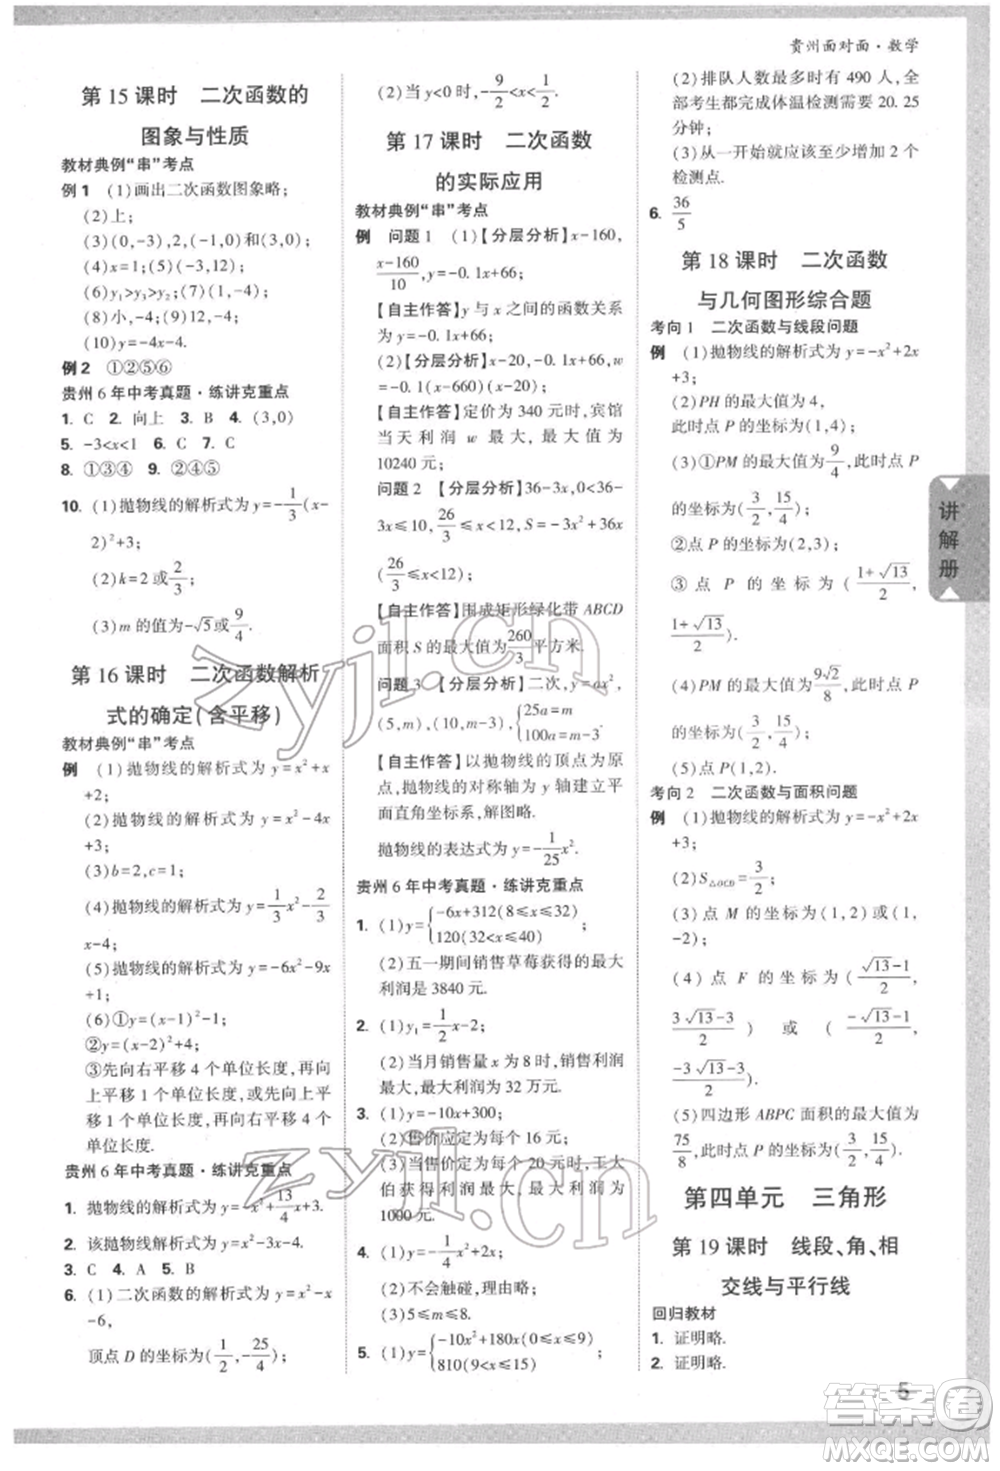 贵州面对面·数学
第15课时　二次函数的
图象与性质
教材典例“串”考点
例1　(1)画出二次函数图象略；
(2)上；
(3)(0,-3),2,(-1,0),(3,0)；
(4)x=1；(5)(-3,12)；
(6)y₁>y₃>y₂；(7)(1,-4)；
(8)小,-4；(9)-4；
(10)y=-4x-4.
例2　①②⑤⑥
贵州6年中考真题·练讲克重点
1. C　2. 向上　3. B　4. (3,0)
5. -3<x<1　6. C　7. C
8. ①③④　9. ②④⑤
10. (1)抛物线的解析式为y=-1/3(x-
2)²+3；
(2)k=2或2/3；
(3)m的值为-√5或9/4.
第16课时　二次函数解析
式的确定(含平移)
教材典例“串”考点
例　(1)抛物线的解析式为y=x²+x
+2；
(2)抛物线的解析式为y=x²-4x
+3；
(3)b=2,c=1；
(4)抛物线的解析式为y=1/3x²-2/3
x-4；
(5)抛物线的解析式为y=-6x²-9x
+1；
(6)①y=(x-1)²+2；
②y=(x-2)²+4；
③先向右平移4个单位长度,再向
上平移1个单位长度,或先向上平
移1个单位长度,再向右平移4个
单位长度.
贵州6年中考真题·练讲克重点
1. 抛物线的解析式为y=-x²+13/4x+3.
2. 该抛物线解析式为y=x²-3x-4.
3. C　4. A　5. B
6. (1)二次函数的解析式为y=x²-x
-6,
顶点D的坐标为(1/2,-25/4)；
(2)当y<0时,-9/2<x<1/2.
第17课时　二次函数
的实际应用
教材典例“串”考点
例　问题1　(1)【分层分析】x-160,
x-160/10,y=-0.1x+66；
【自主作答】y与x之间的函数关系
式为y=-0.1x+66；
(2)【分层分析】-0.1x+66,x-20,w
=-0.1(x-660)(x-20)；
【自主作答】定价为340元时,宾馆
当天利润w最大,最大值为
10240元.
问题2　【分层分析】36-3x,0<36-
3x≤10,26/3≤x<12,S=-3x²+36x
(26/3≤x<12)；
【自主作答】围成矩形绿化带ABCD
面积S的最大值为260/3平方米.
问题3　【分层分析】二次,y=ax²,
(5,m),(10,m-3),{25a=m
100a=m-3；
【自主作答】以抛物线的顶点为原
点,抛物线的对称轴为y轴建立平
面直角坐标系,解图略.
抛物线的表达式为y=-1/25x².
贵州6年中考真题·练讲克重点
1. (1)y={-6x+312(8≤x≤32)
120(32<x≤40)；
(2)五一期间销售草莓获得的最大
利润是3840元.
2. (1)y₁=1/2x-2；
(2)当月销售量x为8时,销售利润
最大,最大利润为32万元.
3. (1)y=-10x+300；
(2)售价应定为每个16元；
(3)当售价定为每个20元时,王大
伯获得利润最大,最大利润为
1000元.
4. (1)y=-1/4x²+x+9；
(2)不会触碰,理由略；
(3)5≤m≤8.
5. (1)y={-10x²+180x(0≤x≤9)
810(9<x≤15)；
(2)排队人数最多时有490人,全
部考生都完成体温检测需要20.25
分钟；
(3)从一开始就应该至少增加2个
检测点.
6. 36/5
第18课时　二次函数
与几何图形综合题
考向1　二次函数与线段问题
例　(1)抛物线的解析式为y=-x²+2x
+3；
(2)PH的最大值为4,
此时点P的坐标为(1,4)；
(3)①PM的最大值为9/4,此时点P
的坐标为(3/2,15/4)；
②点P的坐标为(2,3)；
③点P的坐标为(1+√13/2,
1+√13/2).
(4)PM的最大值为9√2/8,此时点P
的坐标为(3/2,15/4)；
(5)点P的坐标为(2,3).
考向2　二次函数与面积问题
例　(1)抛物线的解析式为y=-x²+2x
+3；
(2)S△OCD=3/2；
(3)点M的坐标为(1,2)或(1,
-2)；
(4)点F的坐标为(√13-1/2,
3√13-3/2)或(-√13-1/2,
-3√13-3/2).
(5)四边形ABPC面积的最大值为
75/8,此时点P的坐标为(3/2,15/4).
第四单元　三角形
第19课时　线段、角、相
交线与平行线
回归教材
1. 证明略.
2. 证明略.
讲解册
5
zyjl.cn
zyjl.cn
答案卷
MXQE.COM